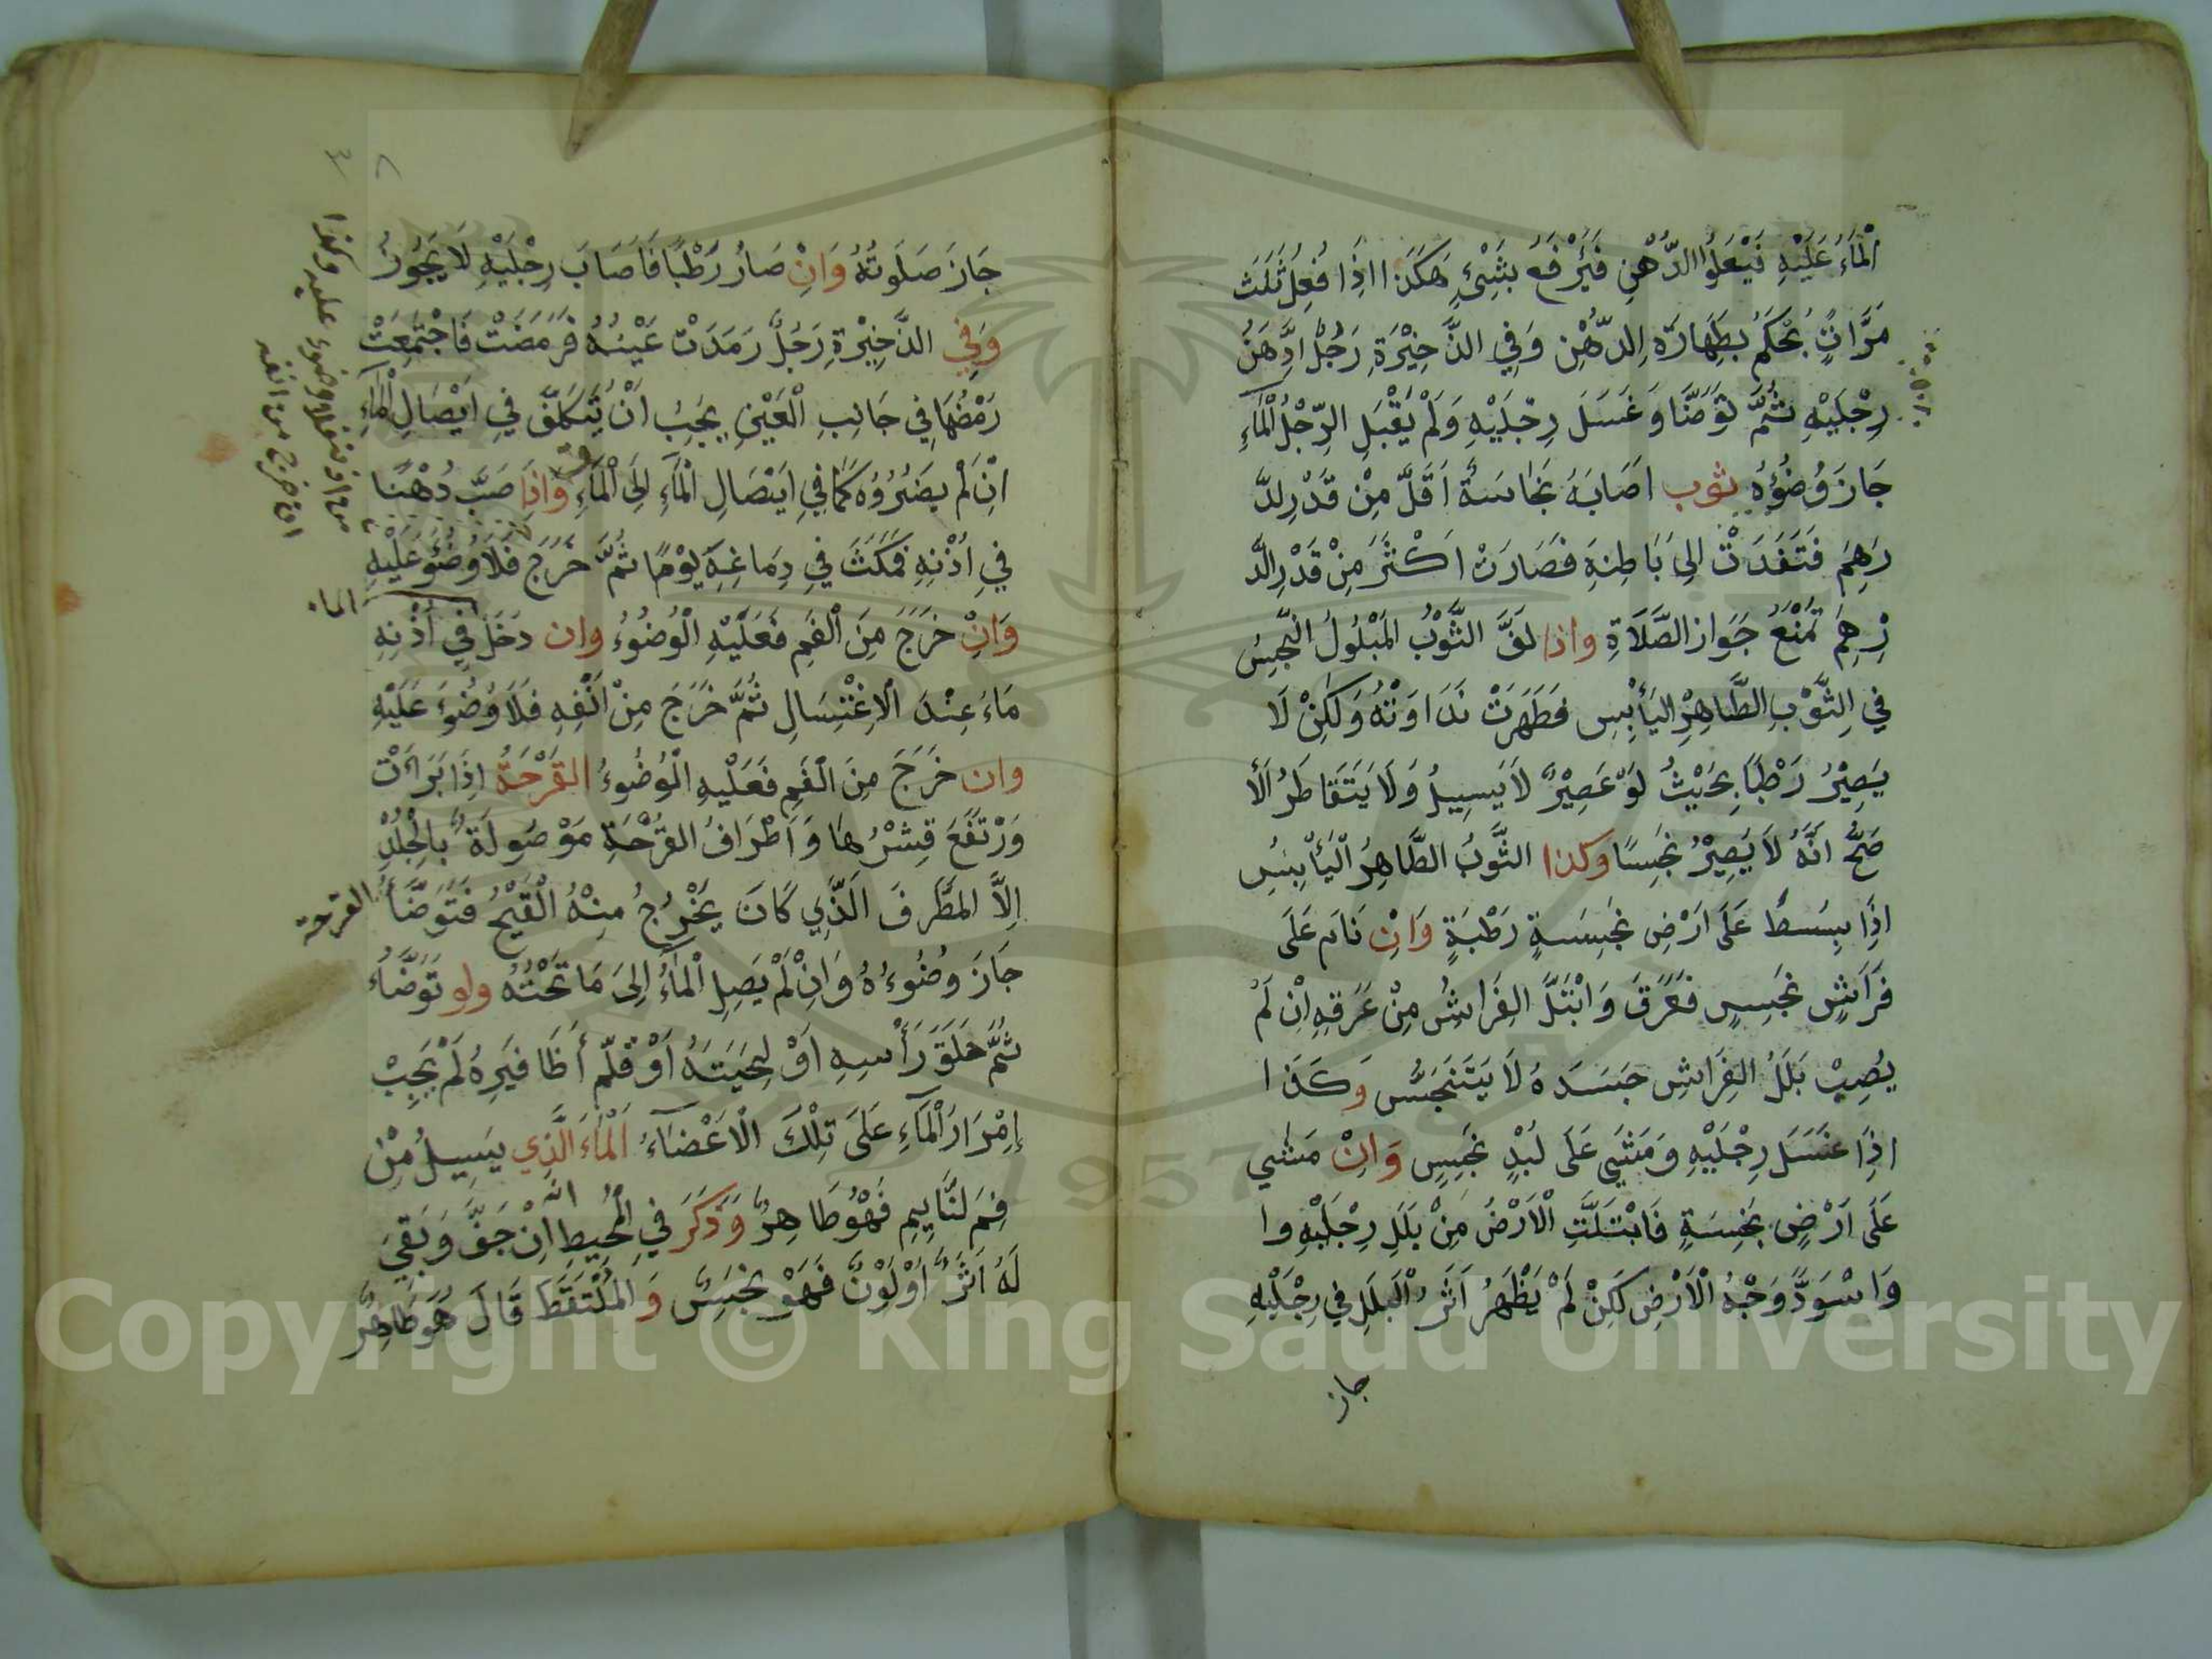 الْمَاءُ عَلَيْهِ فَيَعْلُوا الدُّهْنِ فَيُرْفَعُ بِشَيْءٍ هَكَذَا اِذَا فُعِلَ ثَلَثَ
مَرَّاتٍ يُحْكَمُ بِطَهَارَةِ الدُّهْنِ وَفِي الذَّخِيْرَةِ رَجُلٌ ادَّهَنَ
رِجْلَيْهِ ثُمَّ تَوَضَّا وَغَسَلَ رِجْلَيْهِ وَلَمْ يَقْبَلِ الرِّجْلُ الْمَاءِ
جَازَ وُضُؤُهُ ثوب اَصَابَهُ نَجَاسَةٌ اَقَلَّ مِنْ قَدْرِ الدَّ
رَهِمِ فَنَفَدَتْ اِلَى بَاطِنِهِ فَصَارَتْ اَكْثَرَ مِنْ قَدْرِ الدَّ
رْهِمِ تَمْنَعُ جَوَازَ الصَّلَاةِ واذا لَفَّ الثَّوْبُ المَبْلُولُ النَّجِسُ
فِي الثَّوْبِ الطَّاهِرِ الْيَابِسِ فَظَهَرَتْ نَدَاوَتُهُ وَلَكِنْ لَا
يَصِيْرُ رَطْبًا بِحَيْثُ لَوْ عَصِيْرٌ لَا يَسِيلُ وَلَا يَتَقَاطَرُ الْاَ
صَحُّ اَنَّهُ لَا يَصِيْرُ نَجِسًا وكذا الثَّوبُ الطَّاهِرُ الْيَابِسُ
اِذَا بِسَسطَ عَلَى اَرْضٍ نَجِسَةٍ رَطْبَةٍ وَاِنْ نَامَ عَلَى
فِرَاشٍ نَجِسٍ فَعَرَقَ وَابْتَلَّ الفِرَاشُ مِنْ عَرَقِهِ اِنْ لَمْ
يُصِبْ بَلَلُ الفِرَاشِ جَسَدَهُ لَا يَتَنَجَسُ وَكَذَا
اِذَا غَسَلَ رِجْلَيْهِ وَمَشَى عَلَى لُبْدٍ نَجِسٍ وَاِنْ مَشَي
عَلَى اَرْضٍ نَجِسَةٍ فَابْتَلَّتِ الْاَرْضُ مِنْ بَلَلِ رِجْلَيْهِ وا
وَاسْوَدَّ وَجْهُ الْاَرْضِ لَكِنْ لَمْ يَظْهَرُ اَثَرُ الْبَلَلِ فِي رِجْلَيْهِ
جاز
جَازَ صَلَوتُهُ وَاِنْ صَارَ رَطْبًا فَاَصَابَ رِجْلَيْهِ لَا يَجُوزُ
وَفِي الذَّخِيْرَةِ رَجُلٌ رَمَدَتْ عَيْنُهُ فَرَمَصَتْ فَاجْتَمَعَتْ
رَمْصُهَا فِي جَانِبِ الْعَيْنِ يَجِبُ اَنْ يَتَكَلَّفَ فِي اِيْصَالِ الْمَاءِ
اِنْ لَمْ يَضُرُّوُهُ كَمَا فِي اِيْصَالِ الْمَآءِ اِلَى الْمَآءِ وَاِذَا صَبَّ دُهْنًا
فِي اُذْنِهِ فَمَكَثَ فِي دِمَاغِهِ يَوْمًا ثُمَّ خَرَجَ فَلَا وُضُوَء عَلَيْهِ
وَاِنْ خَرَجَ مِنَ الْفَمِ فَعَلَيْهِ الْوُضُوُءُ وان دَخَلَ فِي اُذْنِهِ
مَاءُ عِنْدَ الْاِغْتِسَالِ ثُمَّ خَرَجَ مِنْ اَنْفِهِ فَلَا وُضُوَءَ عَلَيْهِ
وان خَرَجَ مِنَ الْفَمِ فَعَلَيْهِ الْوُضُوءُ القَرْحَةُ اِذَا بَرَاءَتْ
وَرْتَفَعَ قِشْرُهَا وَاَطْرَافُ القَرْحَةِ مَوْصُولَةٌ بِالْجِلْدِ
اِلَّا الطَّرَفَ الَّذِي كَانَ يَخْرُجُ مِنْهُ الْقَيْحُ فَتَوَضَّأَ
القرحة
جَازَ وُضُوءُهُ وَاِنْ لَمْ يَصِلِ الْمَاءُ اِلَى مَا تَحْتَهُ ولو تَوَضَّاءَ
ثُمَّ حَلَقَ رَأْسِهِ اَوْ لِحْيَتَهُ اَوْ قَلَّمَ أَظَافِيَرِهُ لَمْ يَجِبْ
اِمْرَارُ الْمَآءِ عَلَى تِلْكَ الْاَعْضَاءُ اَلْمَاءَ الَّذِي يَسِيلُ مِنْ
فَمِ لنَّايِمِ فَهُوَ طَاهِرٌ وَذَكَرَ فِي الْمُحِيطِ انه اِنْ جَفَّ وَبَقِيَ
لَهُ اَثَرٌ اَوْ لَوْنٌ فَهَوْ نَجِسٌ وَ المُلْتَقَطَ قَالَ هُوَ طَاهِرٌ
الماء
Copyright © King Saud University
1957